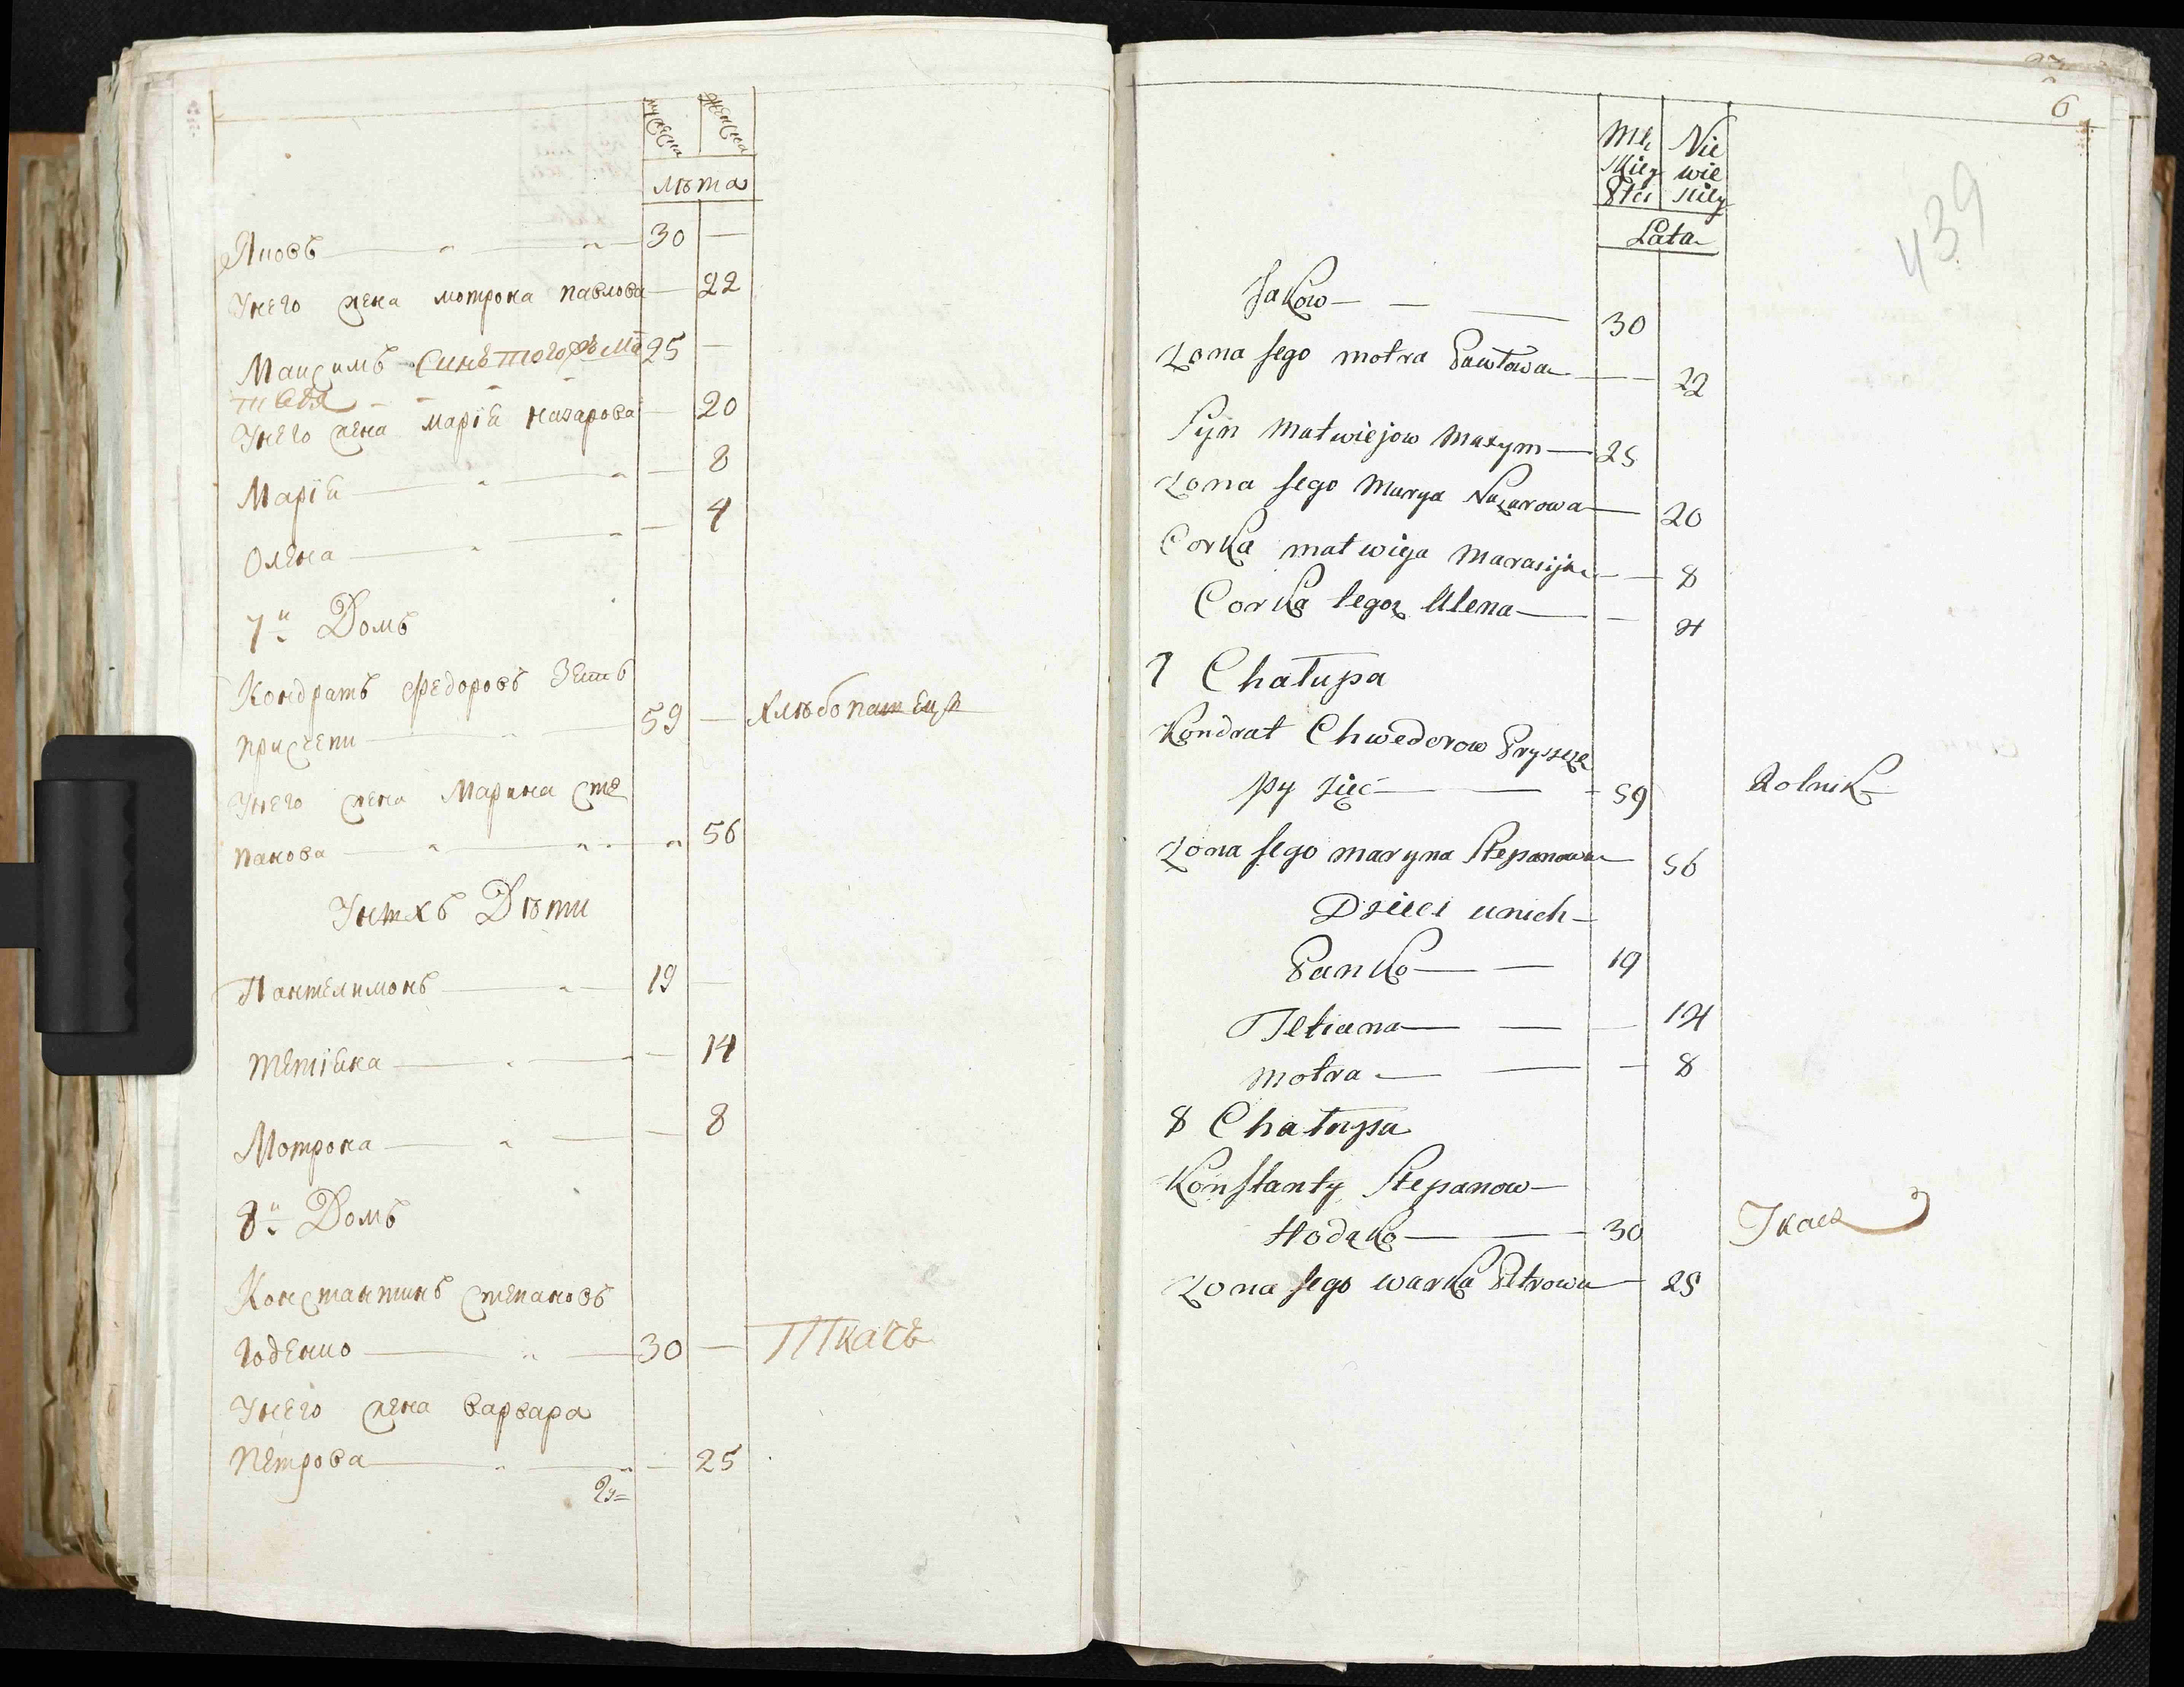 мужска женска
лѣта
Яковъ 30 —
Унего жена мотрона павлова 22
Максимъ Синъ того жъ ма 25 —
твея
Унего жена марія назарова 20
Марія 8
Олена 4
7й Домъ
Кондратъ федоровъ Зять
присчепи 59 — хлѣбопашецъ
Унего жена Марина Сте
панова 56
Унихъ Дѣти
Пантелимонъ 19 —
тетіяна 14
Мотрона 8
8й Домъ
Константинъ степановъ
годенко 30 — Ткачъ
Унего жена варвара
петрова 25
6
439
Mę Nie
skiey wie
Płci skiey
Lata
Jakow 30
Zona Jego motra Pawłowa 22
Syn Matwiejow Maxym 25
Zona Jego Marya Nazarowa 20
Corka matwieja Marasijka 8
Corka tegoz Ulena 4
7 Chałupa
Kondrat Chwedorow Pryszcze
py zięć 59 Rolnik
Zona Jego maryna Stepanowa 56
Dzieci unich
Panko 19
Tetiana 14
Motra 8
8 Chałupa
Konstanty Stepanow
Hodzko 30 Tkacz
Zona Jego warka Petrowa 25